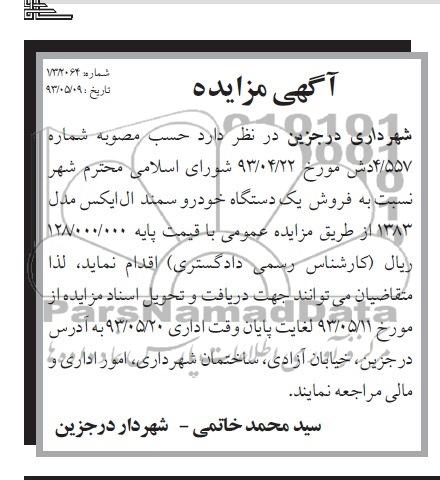 شماره: ۱/۳/۲۰۶۴
تاریخ: ۹۳/۰۵/۰۹
آگهی مزایده
شهرداری درجزین در نظر دارد حسب مصوبه شماره
۴/۵۵۷دش مورخ ۹۳/۰۴/۲۲ شورای اسلامی محترم شهر
نسبت به فروش یک دستگاه خودرو سمند ال‌ایکس مدل
۱۳۸۳ از طریق مزایده عمومی با قیمت پایه ۱۲۸/۰۰۰/۰۰۰
ریال (کارشناس رسمی دادگستری) اقدام نماید، لذا
متقاضیان می‌توانند جهت دریافت و تحویل اسناد مزایده از
مورخ ۹۳/۰۵/۱۱ لغایت پایان وقت اداری ۹۳/۰۵/۲۰ به آدرس
درجزین، خیابان آزادی، ساختمان شهرداری، امور اداری و
مالی مراجعه نمایند.
سید محمد خاتمی - شهردار درجزین
ParsNamadData